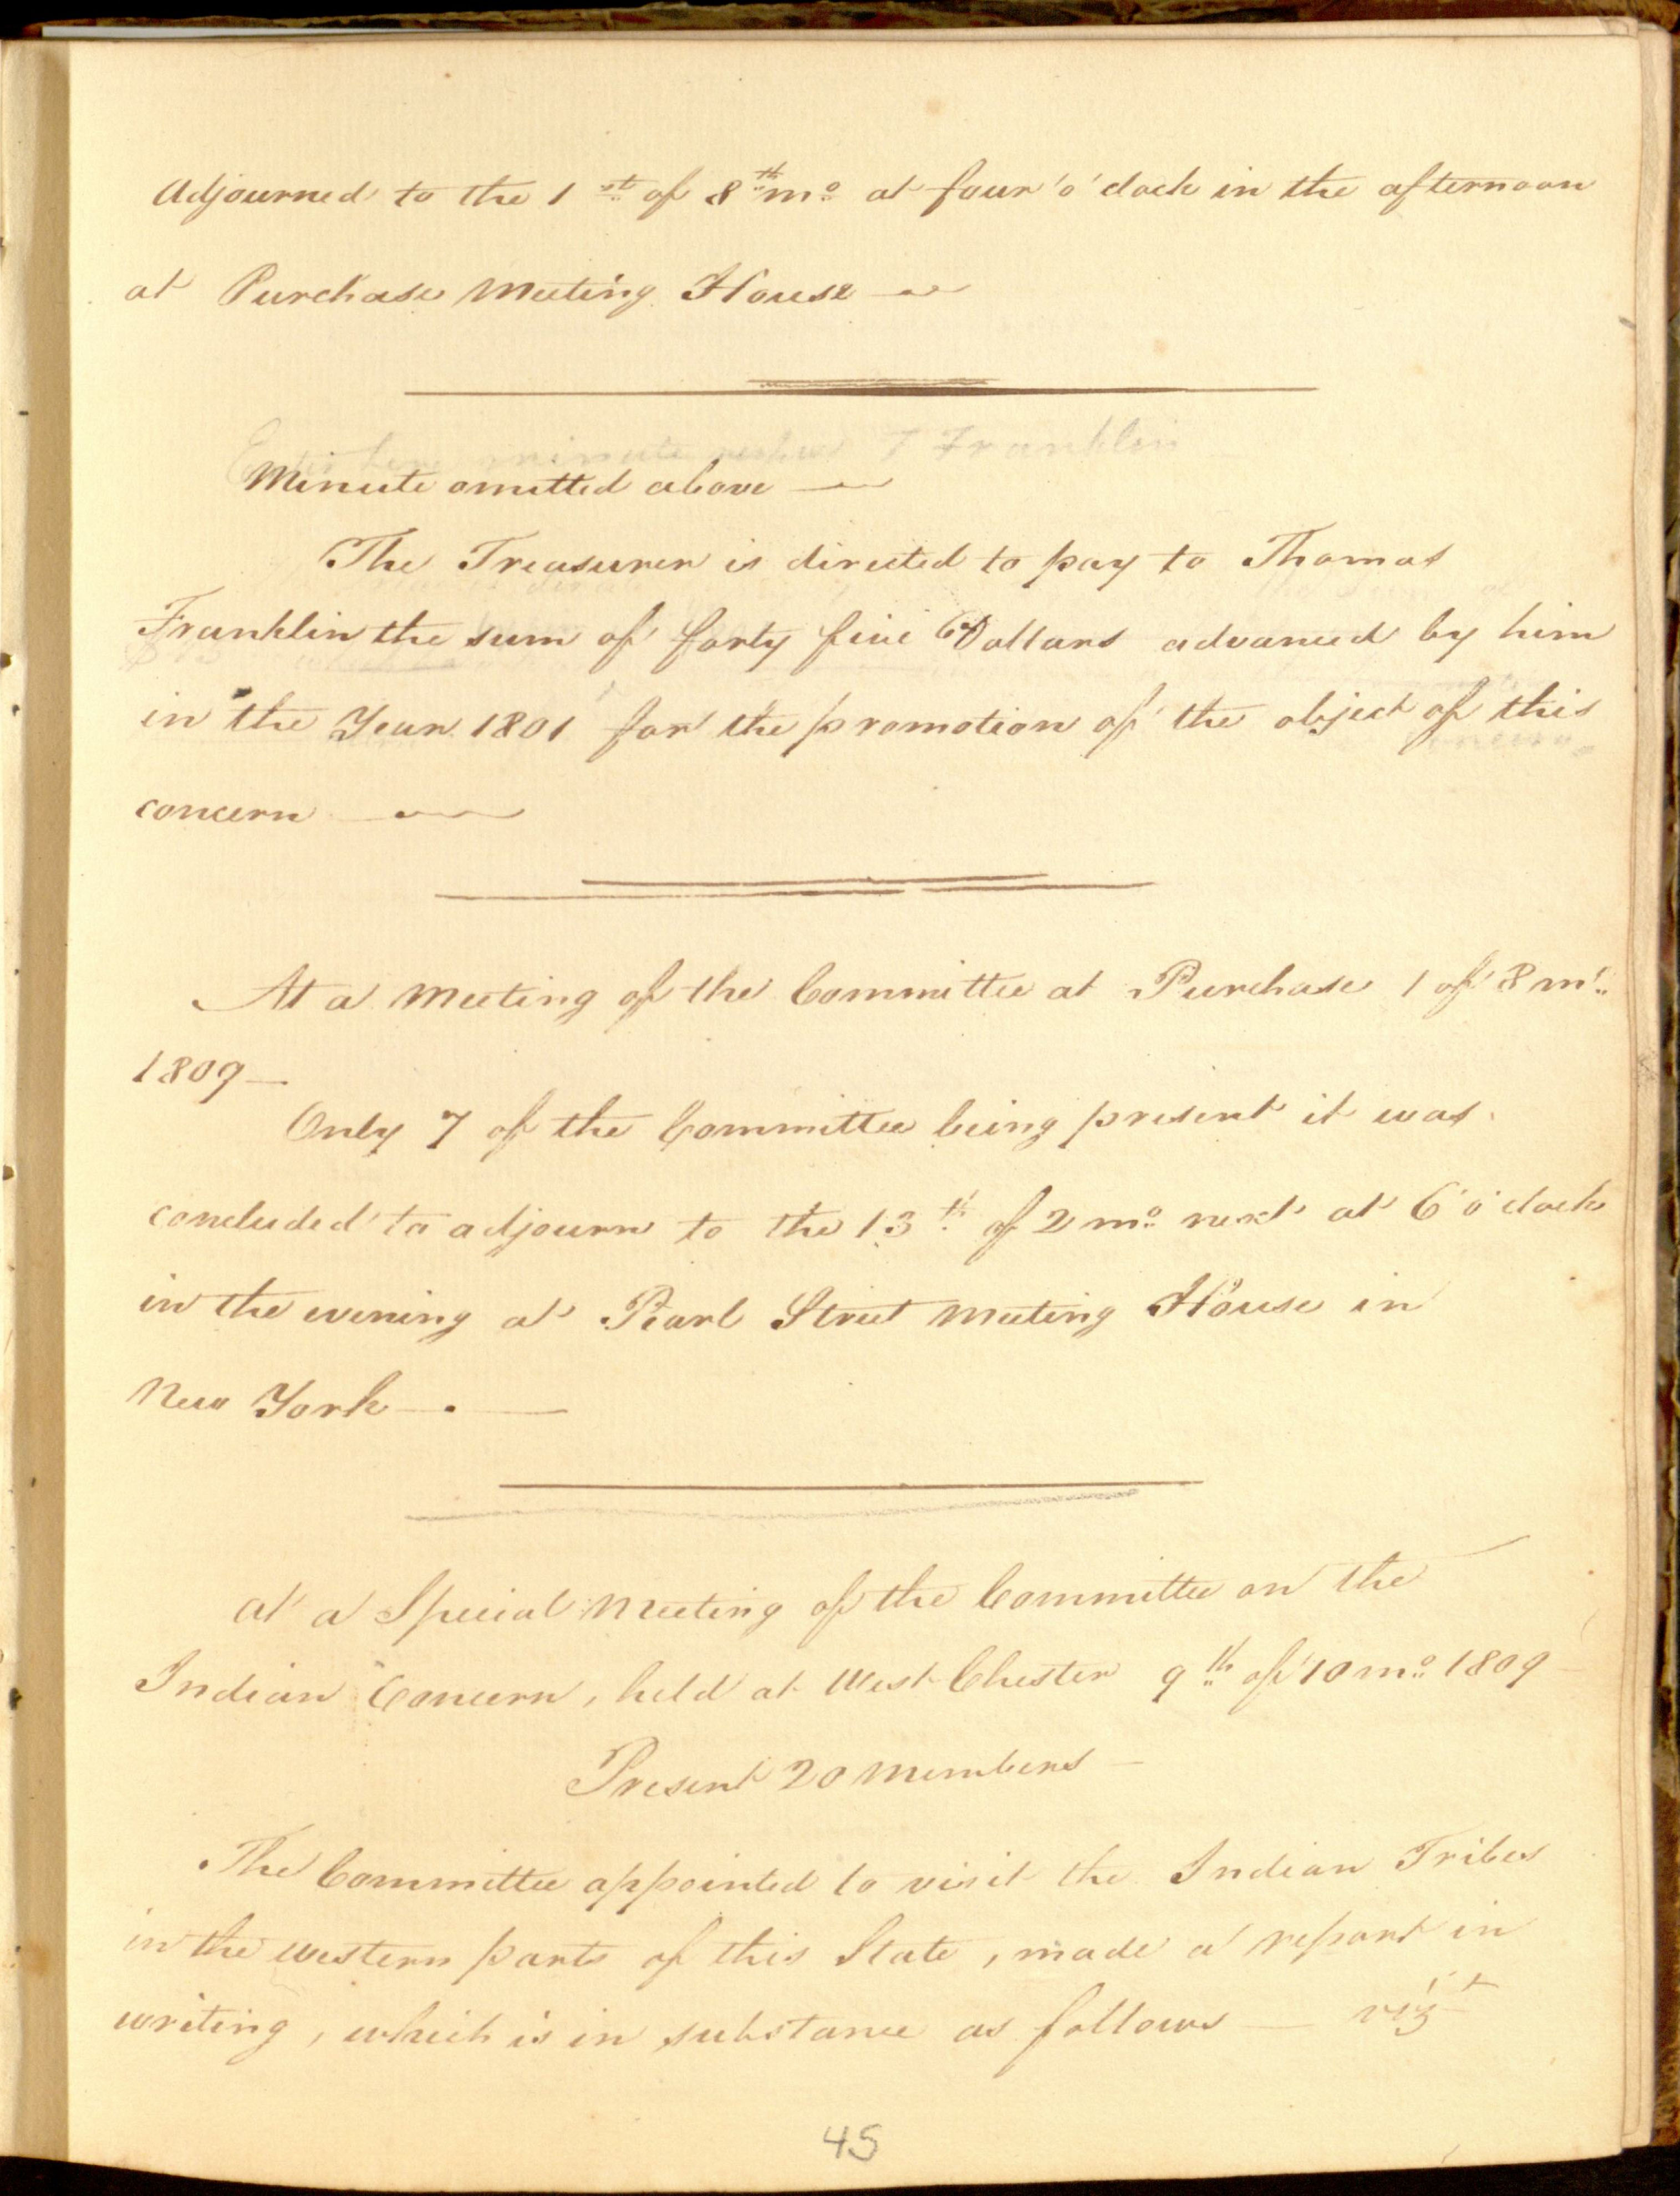 Adjourned to the 1st of 8th mo at four 'o' clock in the afternoon
at Purchase Meeting House
minute T Franklin
Minute omitted above
The Treasurer is directed to pay to Thomas
Franklin the sum of forty five Dollars advanced by him
in the Year 1801 for the promotion of the object of this
concern
At a Meeting of the Committee at Purchase 1 of 8 mo
1809
Only 7 of the Committee being present it was
concluded to adjourn to the 13th of 2 mo next at 6 'o' clock
in the evening at Pearl Street Meeting House in
New York
At a Special Meeting of the Committee on the
Indian Concern, held at West Chester 9th of 10 mo 1809
Present 20 Members
The Committee appointed to visit the Indian Tribes
in the western parts of this State, made a report in
writing, which is in substance as follows vizt
45